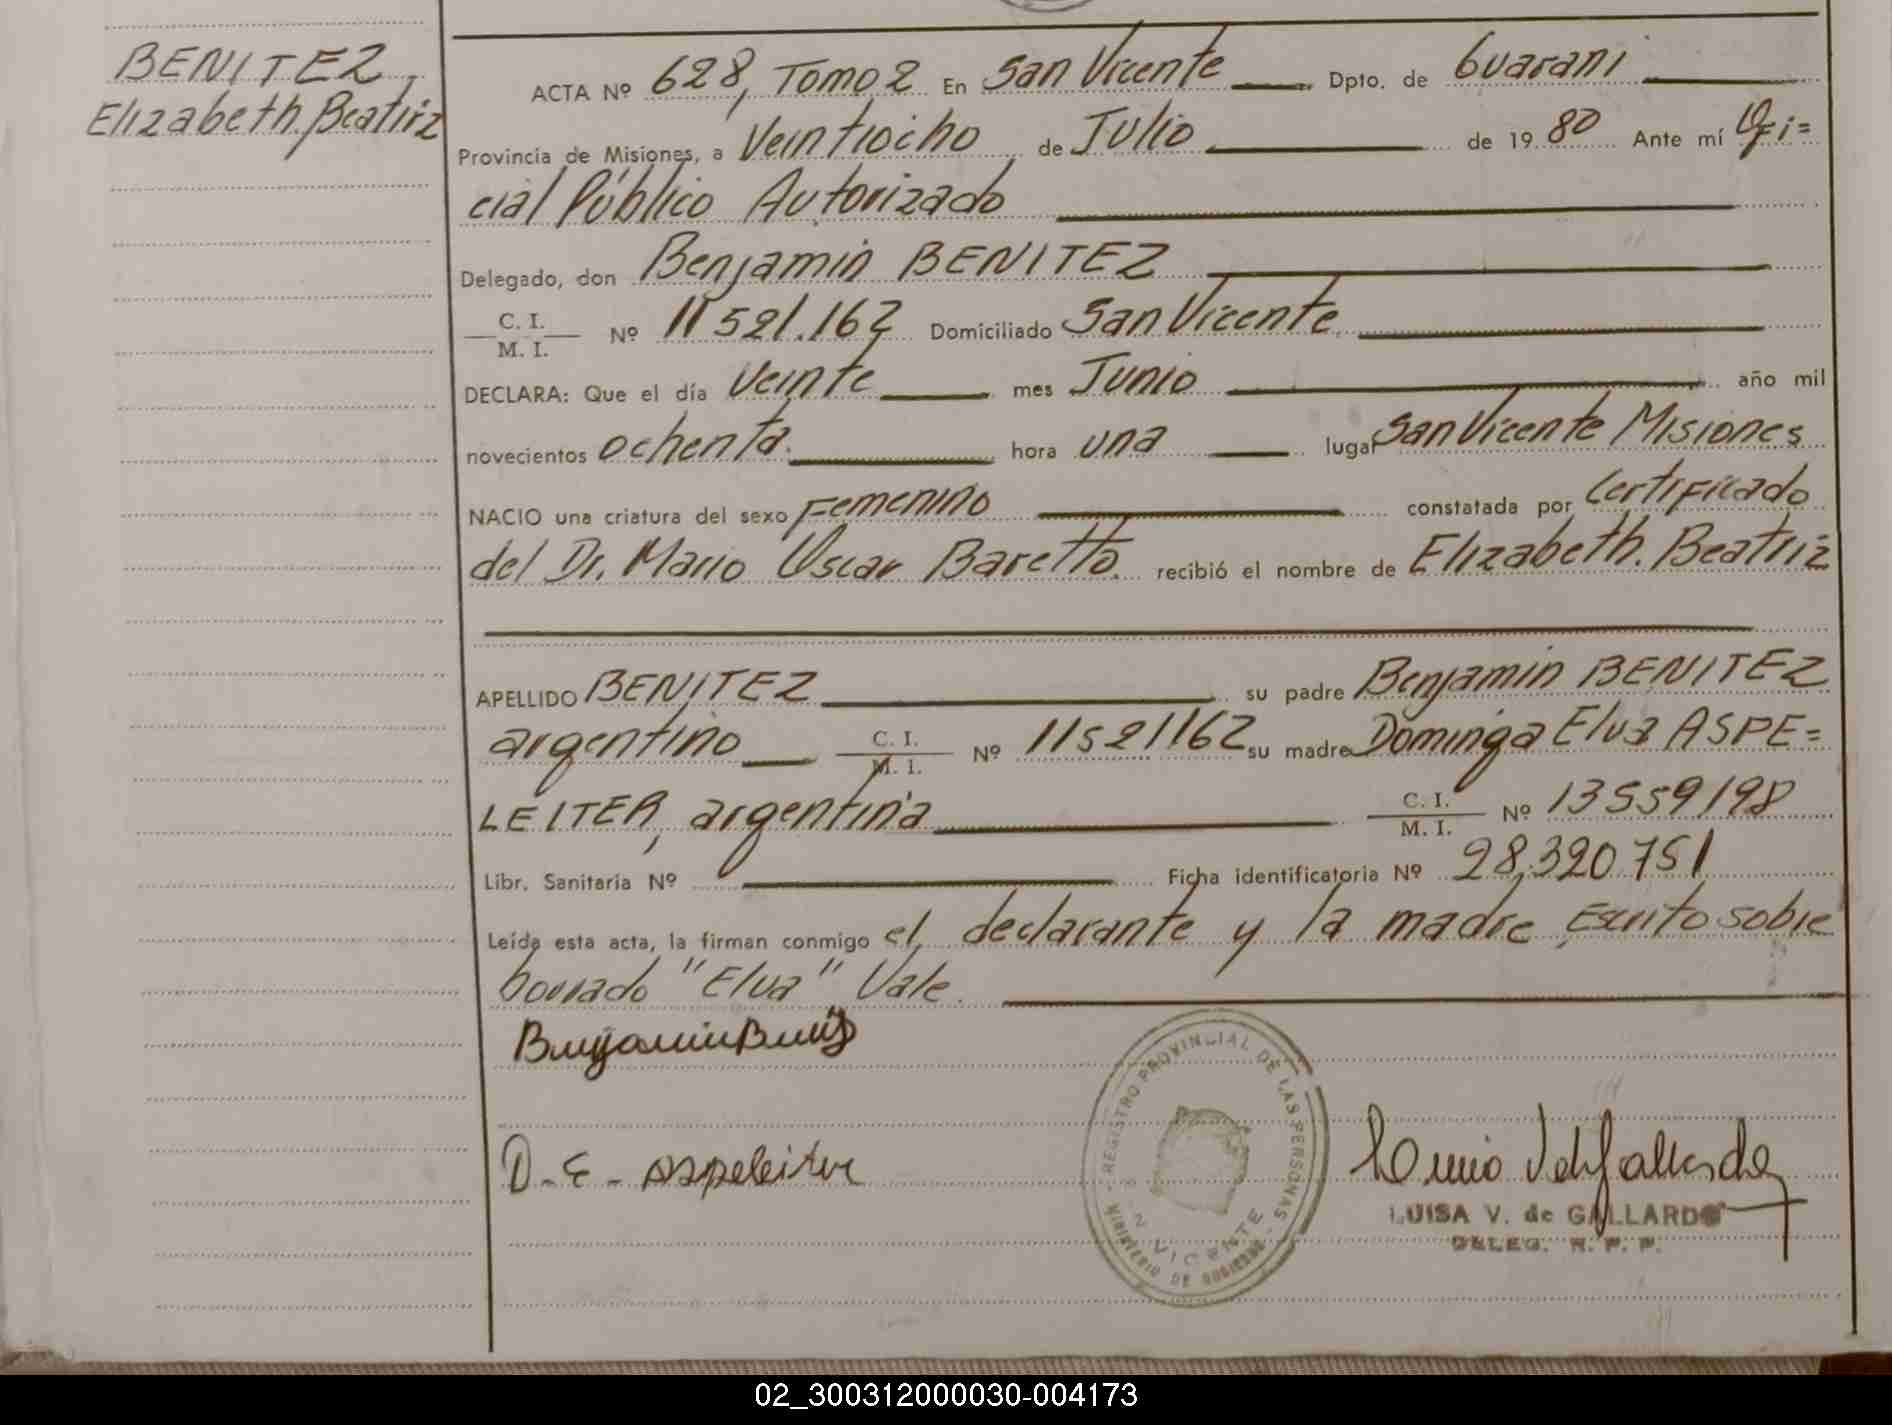 BENITEZ,
Elizabeth. Beatriz
ACTA Nº 628, Tomo 2 En San Vicente Dpto. de Guarani
Provincia de Misiones, a Veintiocho de Julio de 19 80 Ante mí Ofi=
cial Público Autorizado
Delegado, don Benjamin BENITEZ
C. I.
M. I.
Nº 11521.162 Domiciliado San Vicente
DECLARA: Que el día Veinte mes Junio año mil
novecientos ochenta. hora una lugar San Vicente Misiones
NACIO una criatura del sexo Femenino constatada por Certificado
del Dr. Mario Oscar Baretto. recibió el nombre de Elizabeth. Beatriz
APELLIDO BENITEZ su padre Benjamin BENITEZ
argentino C. I. M. I. Nº 11521162 su madre Dominga Elva ASPE=
LEITER, argentina C. I. M. I. Nº 13559198
Libr. Sanitaria Nº Ficha identificatoria Nº 28.320.751
Leída esta acta, la firman conmigo el declarante y la madre Escrito sobre
borrado "Elva" Vale.
D. E. Aspeleiter
REGISTRO PROVINCIAL DE LAS PERSONAS
VICENTE
LUISA V. de GALLARDO
DELEG. R. P. P.
02_300312000030-004173